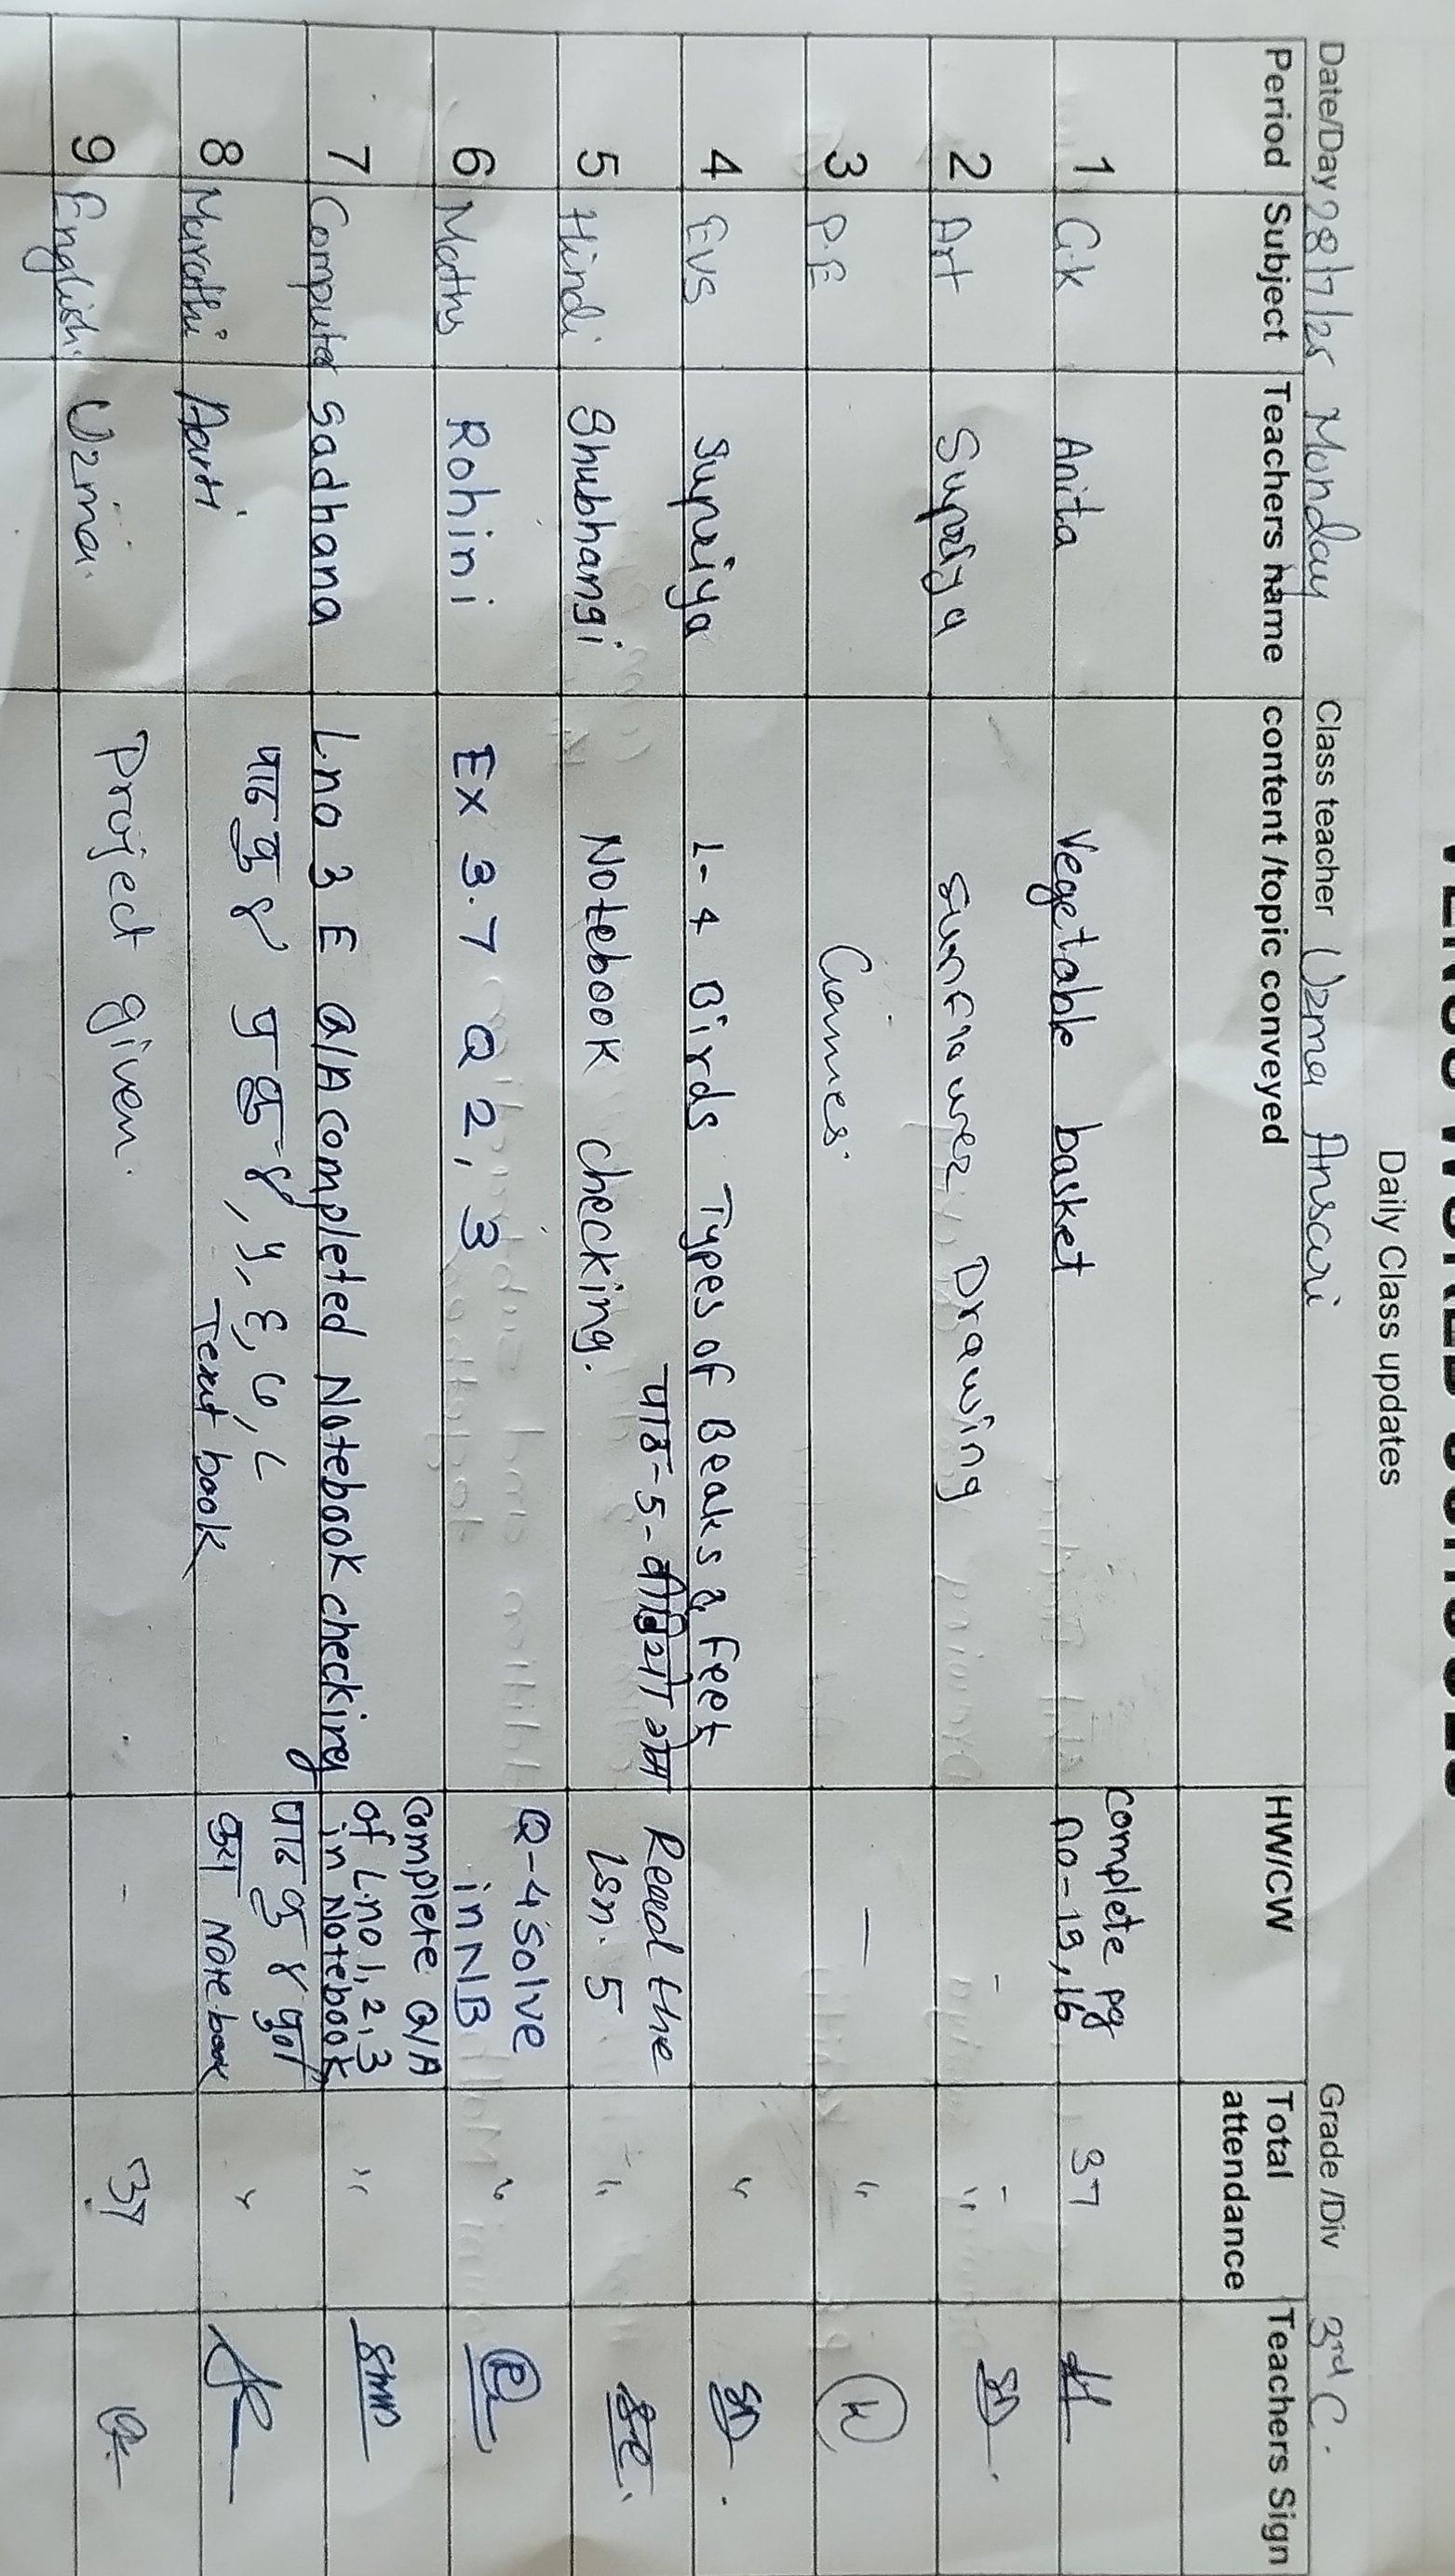 Daily Class updates
Date/Day 28/7/25 Monday Class teacher Uzma Ansari Grade /Div 3rd C.
Period Subject Teachers name content /topic conveyed HW/CW Total attendance Teachers Sign
1 G.K Anita Vegetable basket complete pg no-19,16 37
2 Art Supriya Sunflower Drawing - "
3 P.E Games. — "
4 EVS Supriya L-4 Birds Types of Beaks & Feet "
5 Hindi Shubhangi पाठ-5- Notebook checking. Read the lsn. 5 "
6 Maths Rohini Ex 3.7 Q 2, 3 Q-4 solve in NB "
7 Computer Sadhana L.no 3 E Q/A completed Notebook checking complete Q/A of L.no 1,2,3 in Notebook "
8 Marathi Aarti पाठ क्र ४ प्र क्र-४, ५, ६, ७, ८ Text book पाठ क्र ४ पूर्ण करा Notebook "
9 English. Uzma. Project given. - 37